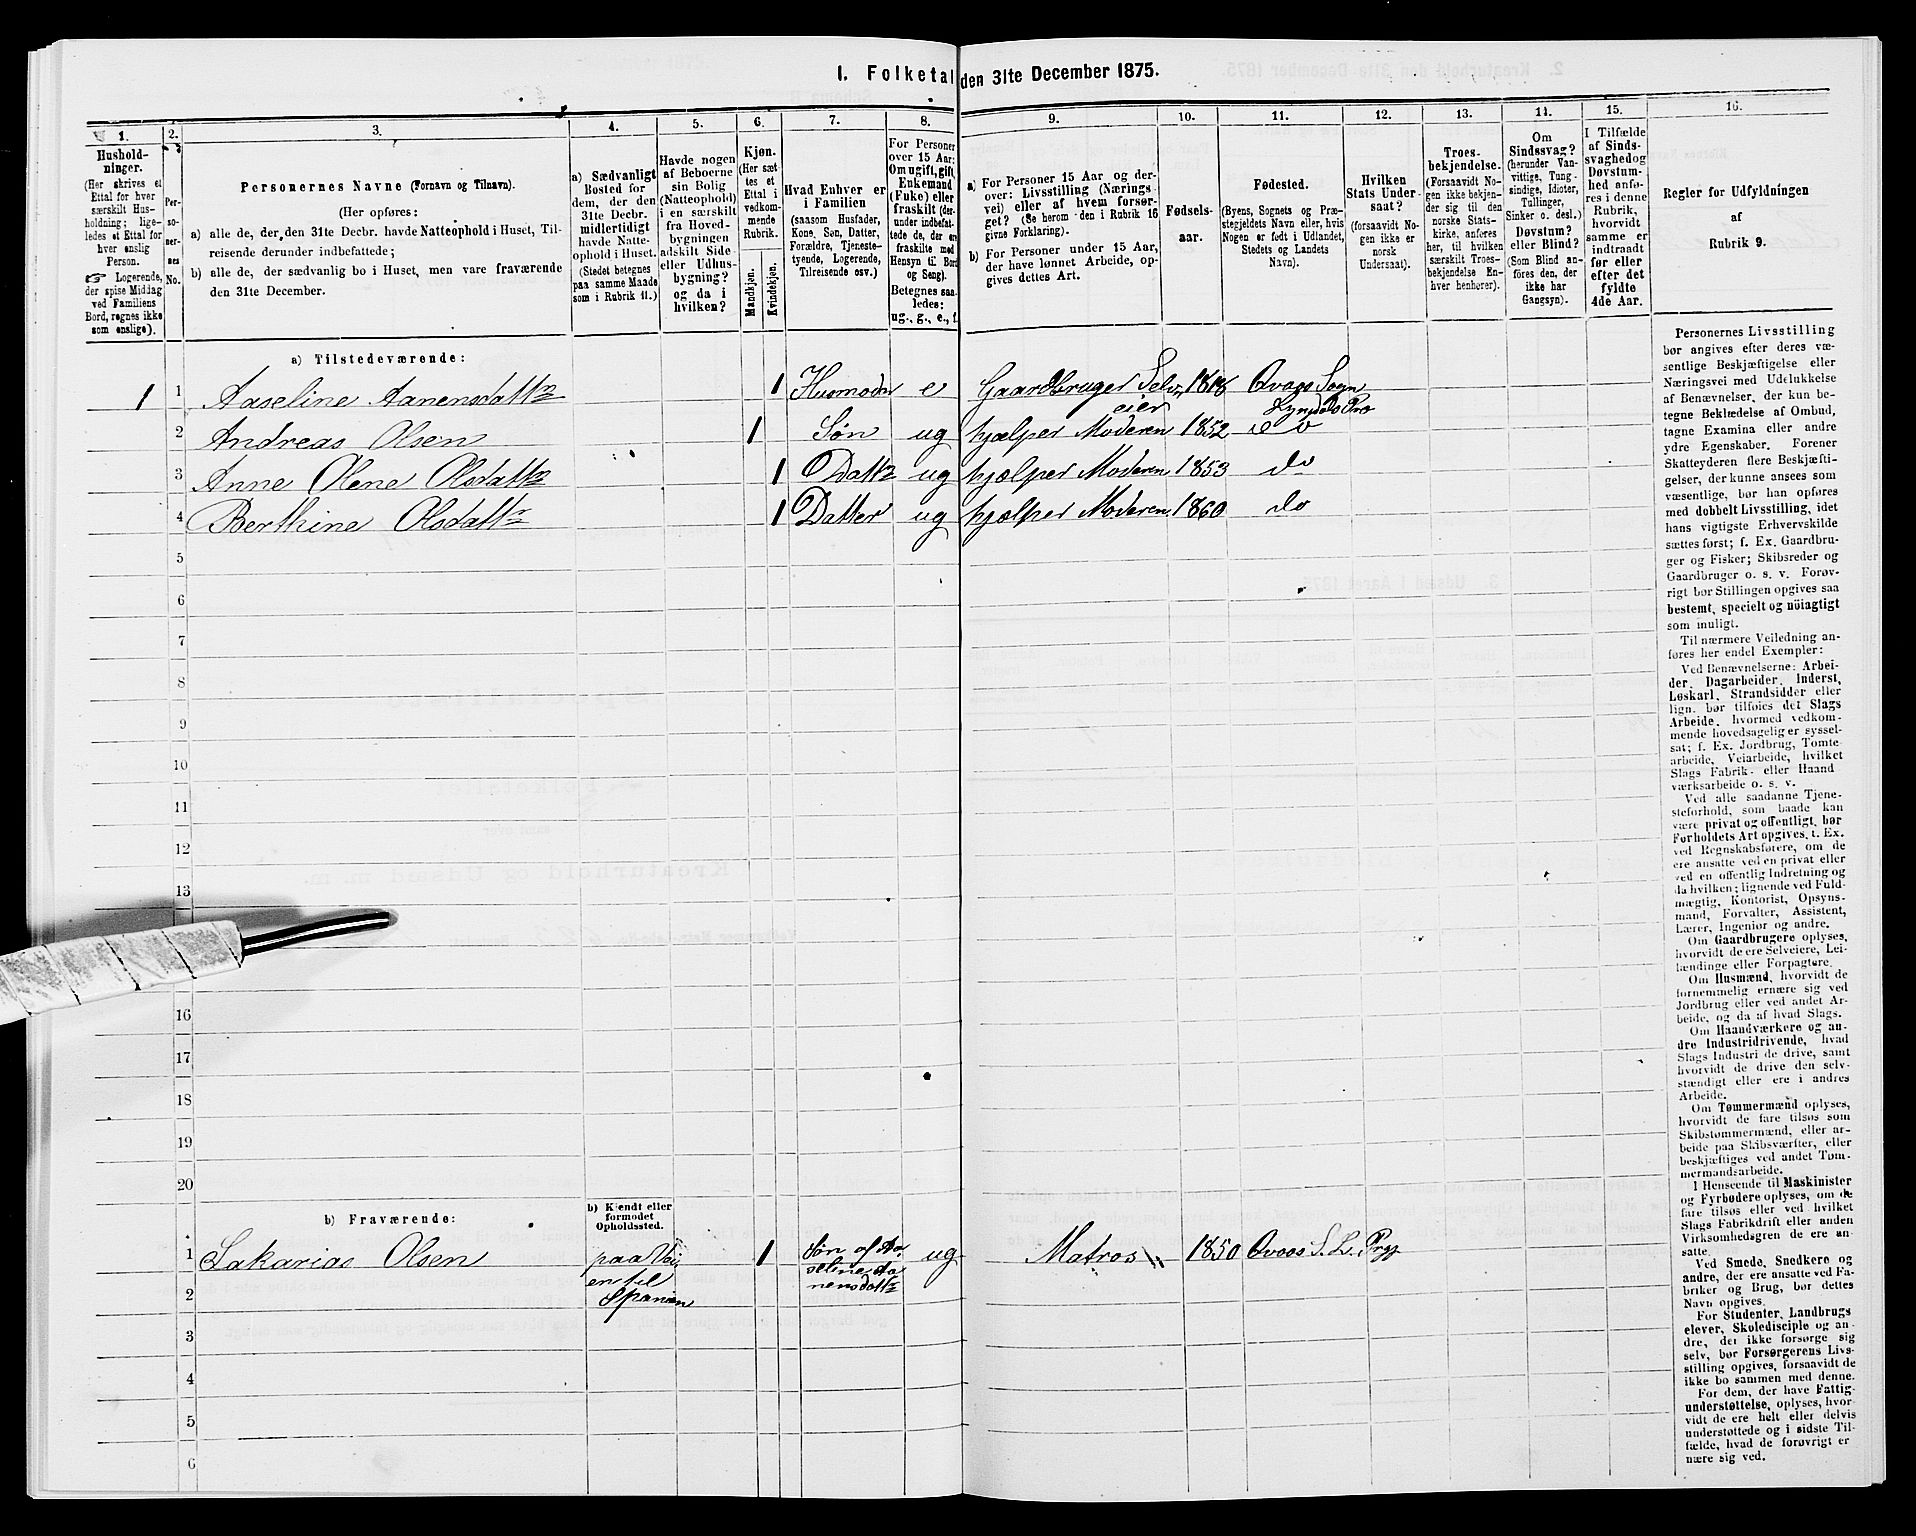 I. Folketal den 31te December 1875.
1. 2. 3. 4. 5. 6. 7. 8. 9. 10. 11. 12. 13. 14. 15. 16.
Hushold-
ninger.
(Her skrives et
Ettal for hver
særskilt Hus-
holdning; lige-
ledes et Ettal for
hver enslig
Person.
☞ Logerende,
der spise Middag
ved Familiens
Bord, regnes ikke
som enslige).
Per-
so-
ner-
nes
No.
Personernes Navne (Fornavn og Tilnavn).
(Her opføres:
a) alle de, der den 31te Decbr. havde Natteophold i Huset, Til-
reisende derunder indbefattede;
b) alle de, der sædvanlig bo i Huset, men vare fraværende
den 31te December.
a) Sædvanligt
Bosted for
dem, der den
31te Decbr.
midlertidigt
havde Natte-
ophold i Huset.
(Stedet betegnes
paa samme Maade
som i Rubrik 11.)
Havde nogen
af Beboerne
sin Bolig
(Natteophold)
i en særskilt
fra Hoved-
bygningen
adskilt Side-
eller Udhus-
bygning?
og da i
hvilken?
Kjøn.
(Her sæt-
tes et
Ettal i
vedkom-
mende
Rubrik.
Mandkjøn.
Kvindekjøn.
Hvad Enhver er
i Familien
(saasom Husfader,
Kone, Søn, Datter,
Forældre, Tjeneste-
tyende, Logerende,
Tilreisende osv.)
For Personer
over 15 Aar:
Om ugift, gift,
Enkemand
(Fuke) eller
fraskilt (der-
under indbefat-
tede de, der ere
fraskilte med
Hensyn til Bord
og Seng).
Betegnes saa-
ledes:
ug., g., e., f.
a) For Personer 15 Aar og der-
over: Livsstilling (Nærings-
vei) eller af hvem forsør-
get? (Se herom den i Rubrik 16
givne Forklaring).
b) For Personer under 15 Aar,
der have lønnet Arbeide, op-
gives dettes Art.
Fødsels-
aar.
Fødested.
(Byens, Sognets og Præ-
stegjeldets Navn eller, hvis
Nogen er født i Udlandet,
Stedets og Landets
Navn).
Hvilken
Stats Under-
saat?
(forsaavidt No-
gen ikke er
norsk
Undersaat).
Troes-
bekjendelse.
(Forsaavidt No-
gen ikke bekjen-
der sig til den
norske Stats-
kirke, anføres
her, til hvilken
særskilt Troes-
bekjendelse En-
hver henhører).
Om
Sindssvag?
(herunder Van-
vittige, Tung-
sindige, Idioter,
Tullinger,
Sinker o. desl.)
Døvstum?
eller Blind?
(Som Blind an-
føres den, der
ikke har
Gangsyn).
I Tilfælde
af Sinds-
svaghed og
Døvstum-
hed anfø-
res i denne
Rubrik,
hvorvidt
samme er
indtraadt
før eller
efter det
fyldte
4de Aar.
Regler for Udfyldningen
af
Rubrik 9.
a) Tilstedeværende:
1 1 Aaseline Aanensdattr 1 Husmoder e Gaardbruger Selv- 1818 Qvaas Sogn
eier Lyngdals Præ
2 Andreas Olsen 1 Søn ug hjælper Moderen 1852 do
3 Anne Olene Olsdattr 1 Dattr ug hjælper Moderen 1853 do
4 Berthine Olsdattr 1 Datter ug hjælper Moderen 1860 do
5
6
7
8
9
10
11
12
13
16
17
18
19
20
b) Fraværende:
b) Kjendt eller
formodet
Opholdssted.
1 Sakarias Olsen paa Vei- 1 Søn af Aa- ug Matros 1850 Qvaas S. L. Prgj
en til seline Aa-
2 Spanien nensdattr
3
4
5
6
Personernes Livsstilling
bør angives efter deres væ-
sentlige Beskjæftigelse eller
Næringsvei med Udelukkelse
af Benævnelser, der kun be-
tegne Beklædelse af Ombud,
tagne Examina eller andre
ydre Egenskaber. Forener
Skatteyderen flere Beskjæfti-
gelser, der kunne ansees som
væsentlige, bør han opføres
med dobbelt Livsstilling, idet
hans vigtigste Erhvervskilde
sættes først; f. Ex. Gaardbru-
ger og Fisker; Skibsreder og
Gaardbruger o. s. v. Forøv-
rigt bør Stillingen opgives saa
bestemt, specielt og nøiagtigt
som muligt.
Til nærmere Veiledning an-
føres her endel Exempler:
Ved Benævnelserne: Arbei-
der, Dagarbeider, Inderst,
Løskarl, Strandsidder eller
lign. bør tilføies det Slags
Arbeide, hvormed vedkom-
mende hovedsagelig er syssel-
sat; f. Ex. Jordbrug, Tomte-
arbeide, Veiarbeide, hvilket
Slags Fabrik- eller Haand
værksarbeide o. s. v.
Ved alle saadanne Tjene-
steforhold, som baade kan
være privat og offentligt, bør
Forholdets Art opgives, t. Ex.
ved Regnskabsførere, om de
ere ansatte ved en privat eller
ved en offentlig Indretning og
da hvilken; lignende ved Fuld-
mægtig, Kontorist, Opsyns-
mand, Forvalter, Assistent,
Lærer, Ingeniør og andre.
Om Gaardbrugere oplyses,
hvorvidt de ere Selveiere, Lei-
lændinge eller Forpagtere.
Om Husmænd, hvorvidt de
fornemmelig ernære sig ved
Jordbrug eller ved andet Ar-
beide, og da af hvad Slags.
Om Haandværkere og an-
dre Industridrivende, hvad
Slags Industri de drive, samt
hvorvidt de drive den selv-
stændigt eller ere i andres
Arbeide.
Om Tømmermænd oplyses,
hvorvidt de fare tilsøs som
Skibstømmermænd, eller ar-
beide paa Skibsværfter, eller
beskjæftiges ved andet Tøm-
mermandsarbeide.
I Henseende til Maskinister
og Fyrbødere oplyses, om de
fare tilsøs eller ved hvilket
Slags Fabrikdrift eller anden
Virksomhedsgren de ere an-
satte.
Ved Smede, Snedkere og
andre, der ere ansatte ved Fa-
briker og Brug, bør dettes
Navn opgives.
For Studenter, Landbrugs
elever, Skoledisciple og an-
dre, der ikke forsørge sig
selv, bør Forsørgerens Livs-
stilling opgives, forsaavidt de
ikke bo sammen med denne.
For dem, der have Fattig-
understøttelse, oplyses, hvor-
vidt de ere helt eller delvis
understøttede og i sidste Til-
fælde, hvad de forøvrigt er
nære sig ved.